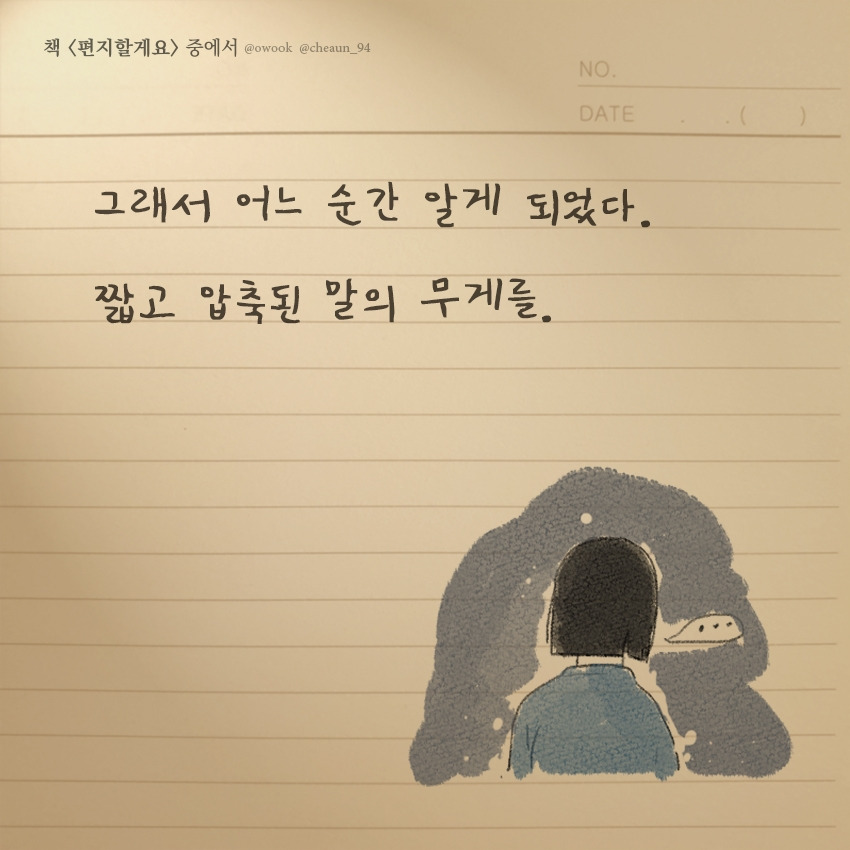 책 <편지할게요> 중에서 @owook @cheaun_94
NO.
DATE . . ( )
그래서 어느 순간 알게 되었다.
짧고 압축된 말의 무게를.